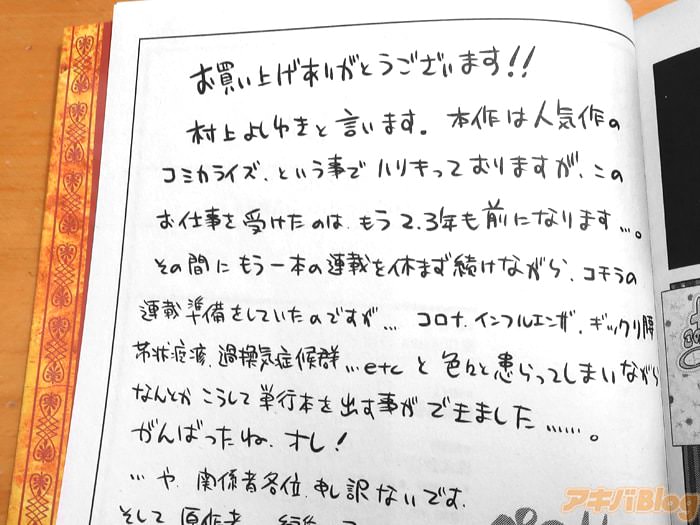 お買い上げありがとうございます!!
村上よしゆきと言います。本作は人気作の
コミカライズ、という事でハリキっておりますが、この
お仕事を受けたのは、もう2.3年も前になります…。
その間にもう一本の連載を休まず続けながら、コチラの
連載準備をしていたのですが… コロナ、インフルエンザ、ギックリ腰
帯状疱疹、過換気症候群…etcと色々と患らってしまいながら
なんとかこうして単行本を出す事ができました……。
がんばったね、オレ!
…や、関係者各位、申し訳ないです、
そして原作者
アキバBlog